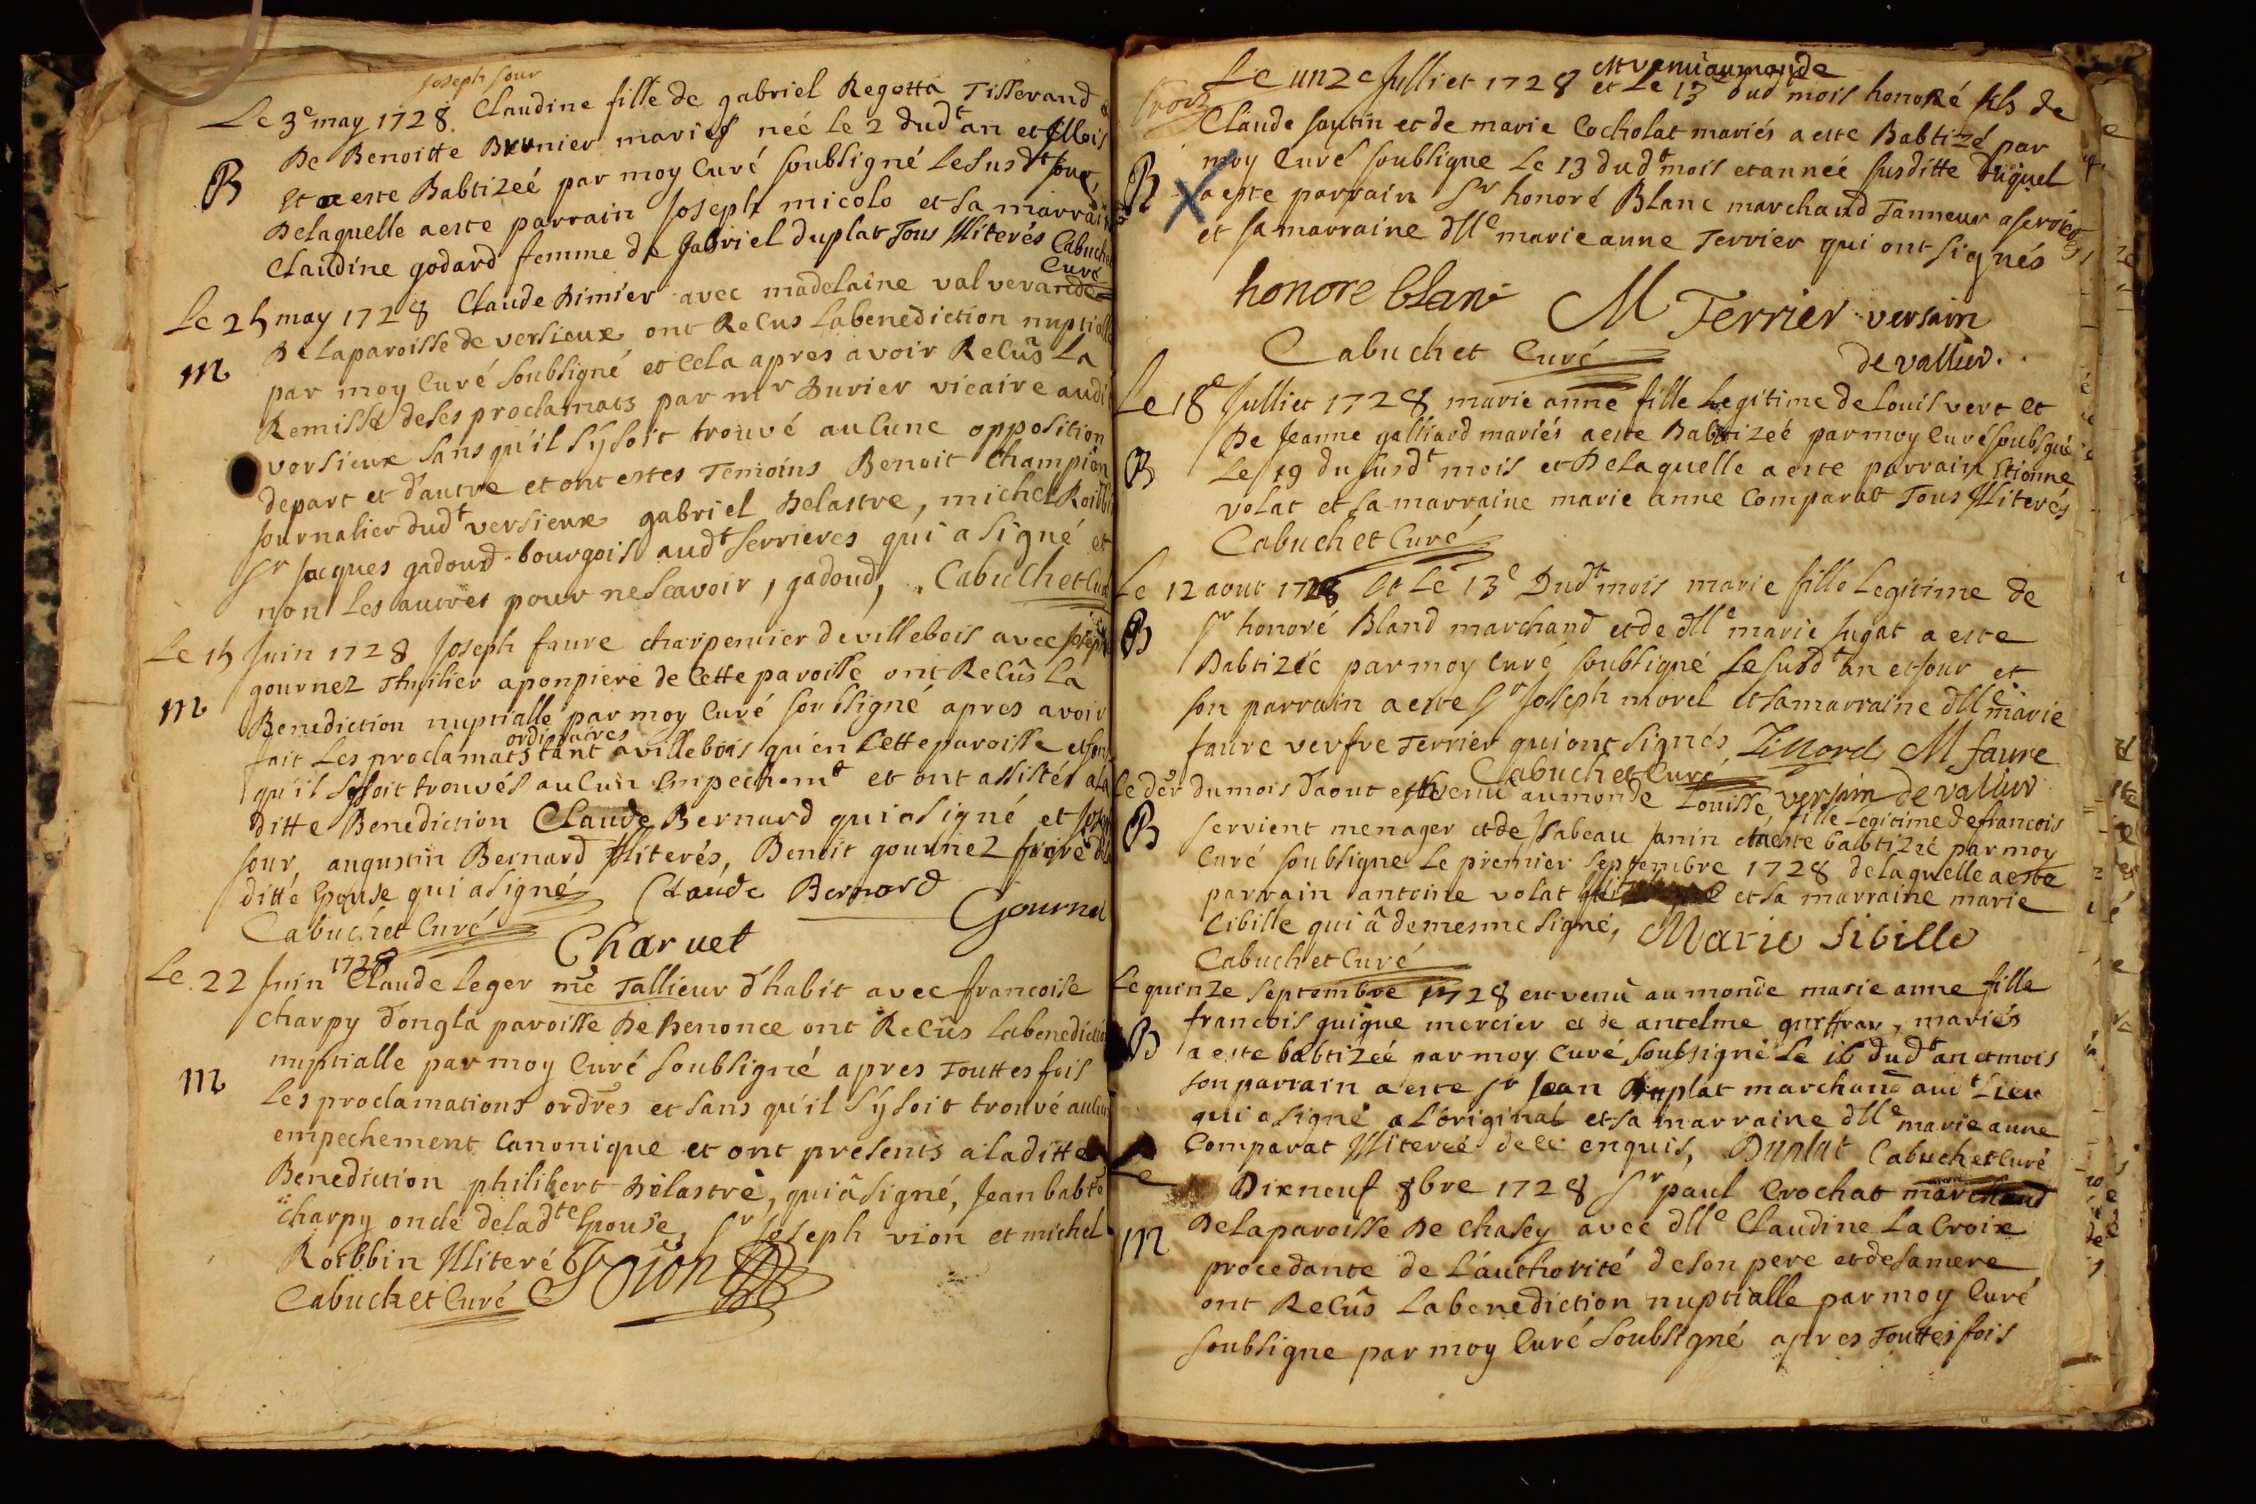 Joseph Sour
Le 3e may 1728. Claudine fille de gabriel Regotta Tisserand
De Benoitte Brunier mariés neé le 2 dudt an et Mois
B
et a este Babtizeé par moy Curé soubsigné le susdt jour,
Delaquelle a este parrain Joseph micolo et sa marraine
Claudine godard femme de gabriel duplat Tous Illiterés Cabuchet
Curé
Le 25 may 1728 Claude Dimier avec madelaine valverande
De la paroisse de versieux ont Recus la benediction nuptialle
m
par moy Curé soubsigné et Cela apres avoir Recûs La
Remisse de ses proclamats par mr Durier vicaire audit
versieux sans qu'il sy soit trouvé aucune opposition
depart et d'autre et ont estes Temoins Benoit Champion
Journalier dudt versieux gabriel Delastre, michel Roibbin
Sr Jacques gadoud bourgois audt serrieres qui a signé et
non les autres pour ne scavoir, gadoud, Cabuchet Curé
Le 15 Juin 1728 Joseph faure charpentier de villebois avec Joseph
gournez aponpiere de Cette paroisse ont Recûs La
m
Benediction nuptialle par moy Curé soubsigné apres avoir
ordinaires
fait Les proclamats tant a villebois qu'en Cette paroisse et sans
qu'il sy soit trouvés aucun Empechemt et ont assistés a la
ditte Benediction Claude Bernard qui a signé et Joseph
sour, augustin Bernard Illiterés, Benoit gournez frere de la
ditte Epouse qui a signé Claude Bernard
Cabuchet Curé Gournez
Charuet
1728
Le 22 Juin Claude Leger me Tallieur d'habit avec francoise
charpy d'ongla paroisse De Benonce ont Recûs la benediction
nuptialle par moy Curé soubsigné apres Touttesfois
m
Les proclamations ordres et sans qu'il sy soit trouvé aucun
empechement Canonique et ont presents a la ditte
Benediction philibert Delastre, qui â signé, Jean babte
charpy oncle de ladte Epouse, Sr Joseph vion et michel
Roibbin Illiteré J Vion
Cabuchet Curé
est venu au monde
Le unze Julliet 1728 et Le 13e dud mois honoré fils de
Claude sautin et de marie Cocholat mariés a este Babtizé par
B
moy Curé soubsigne Le 13 dudt mois et anneé susditte duquel
a este parrain Sr honoré Blanc marchand Tanneur a serrieres
et sa marraine dlle marie anne Terrier qui ont signés
honore blanc M Terrier versain
Cabuchet Curé de vallur.
Le 18e Julliet 1728 marie anne fille Legitime de Louis vert et
De Jeanne galliard mariés a este Babtizeé par moy Curé soubsigné
B
Le 19 du susdt mois et Delaquelle a este parrain Etienne
volat et sa marraine marie anne Comparat Tous Illiterés
Cabuchet Curé
Le 12 aout 1728 et Le 13e Dudt mois marie fille Legitime de
B
Sr honoré Bland marchand et de dlle marie Jugat a este
Babtizeé par moy Curé soubsigné Le susdt an et jour et
son parrain a este Sr Joseph morel et sa marraine dlle marie
faure Terrier qui ont signés, M faure
Cabuchet Curé versain de vallur
Le der du mois d'aout est venu au monde Louisse, fille Legitime de francois
B
servient menager et de Isabeau Janin et a este babtizeé par moy
Curé soubsigne Le premier septembre 1728 de laquelle a este
parrain antoine volat et sa marraine marie
Cibille qui â de mesme signé, Marie Sibille
Cabuchet Curé
Le quinze septembre 1728 est venu au monde marie anne fille
francois guigue mercier et de antelme guiffray, mariés
B
a este babtizeé par moy Curé soubsigné Le 16 dudt an et mois
son parrain a este Sr Jean Duplat marchand audt Lieu
qui a signé a L'original et sa marraine dlle marie anne
Comparat Illitereé de ce enquis, Duplat Cabuchet Curé
Le
Dixneuf 8bre 1728 Sr paul Crochat marchand
m
De la paroisse De Chasey avec dlle Claudine La Croix
procedante de L'authorité de son pere et de sa mere
ont Recûs La benediction nuptialle par moy Curé
soubsigne par moy Curé soubsigné apres Touttesfois